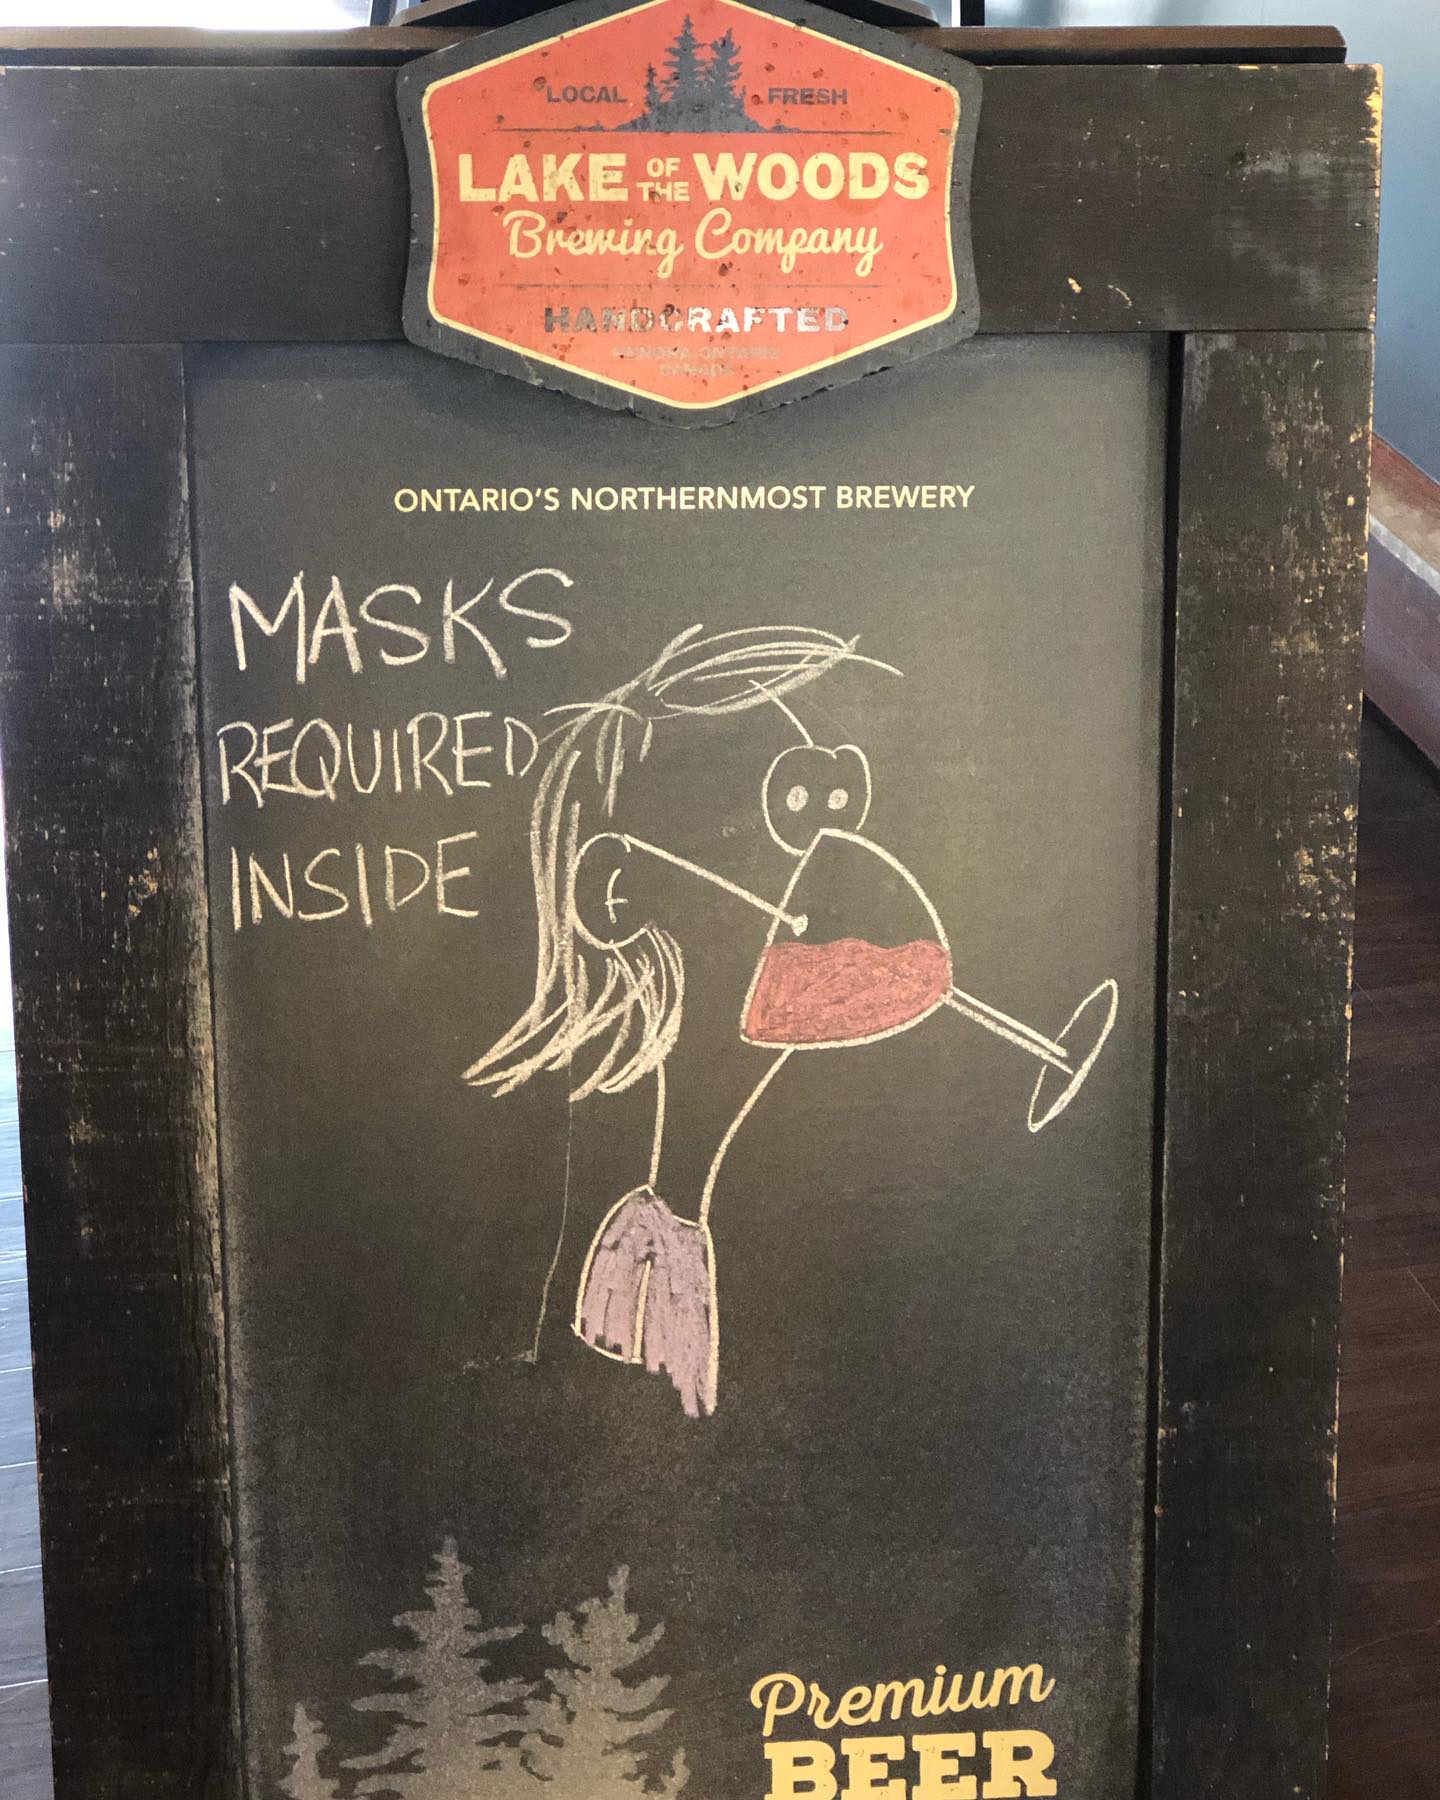 LOCAL FRESH
LAKE OF THE WOODS
Brewing Company
HANDCRAFTED
KENORA, ONTARIO
CANADA
ONTARIO'S NORTHERNMOST BREWERY
MASKS
REQUIRED
INSIDE
Premium
BEER